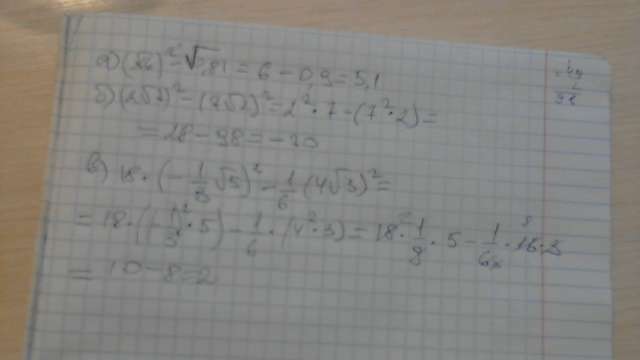 а) (√6)² - √0,81 = 6 - 0,9 = 5,1
49
2
98
б) (2√7)² - (7√2)² = 2² · 7 - (7² · 2) =
= 28 - 98 = -70
в) 18 · (-1/3 √5)² - 1/6 (4√3)² =
= 18 · (-1/3² · 5) - 1/6 · (4² · 3) = 18 · 1/9 · 5 - 1/6 · 16 · 3
= 10 - 8 = 2